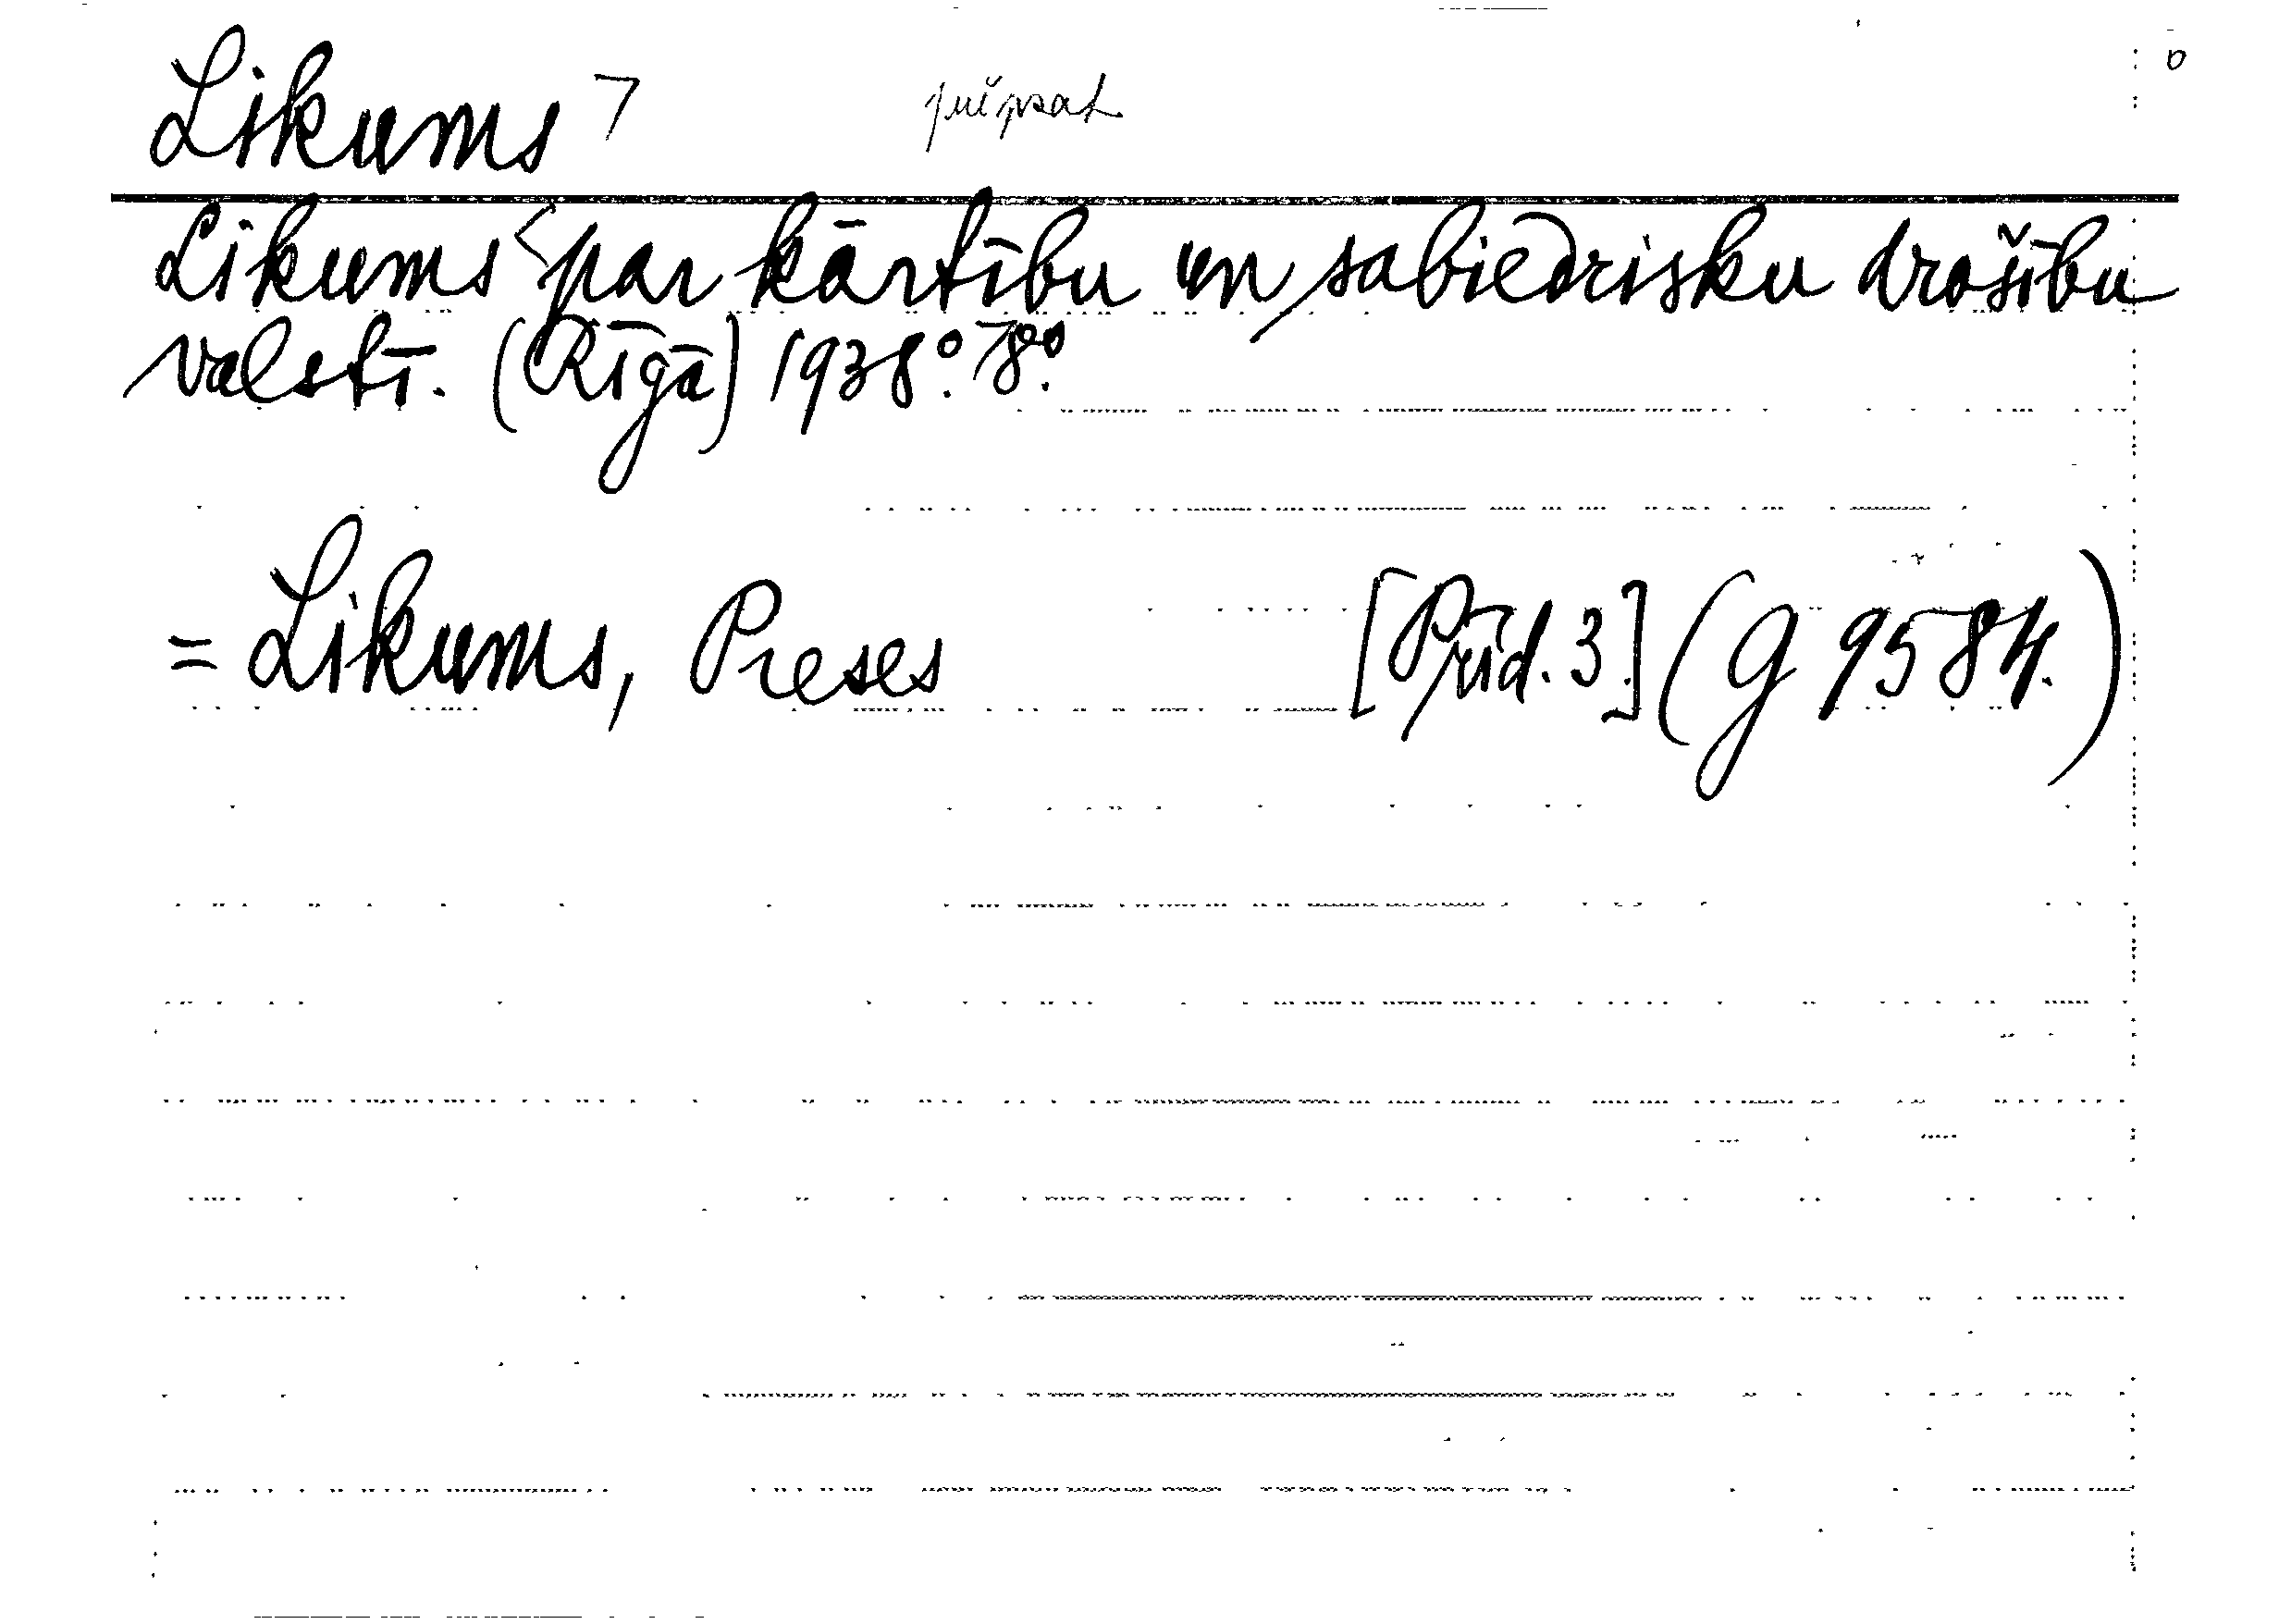 Likums ┐ připsat
Likums <par kārtību un sabiedrisku drošību
valstī. (Rīgā) 1938°. 78°.
= Likums, Preses [Příd. 3.] (G 9584.)